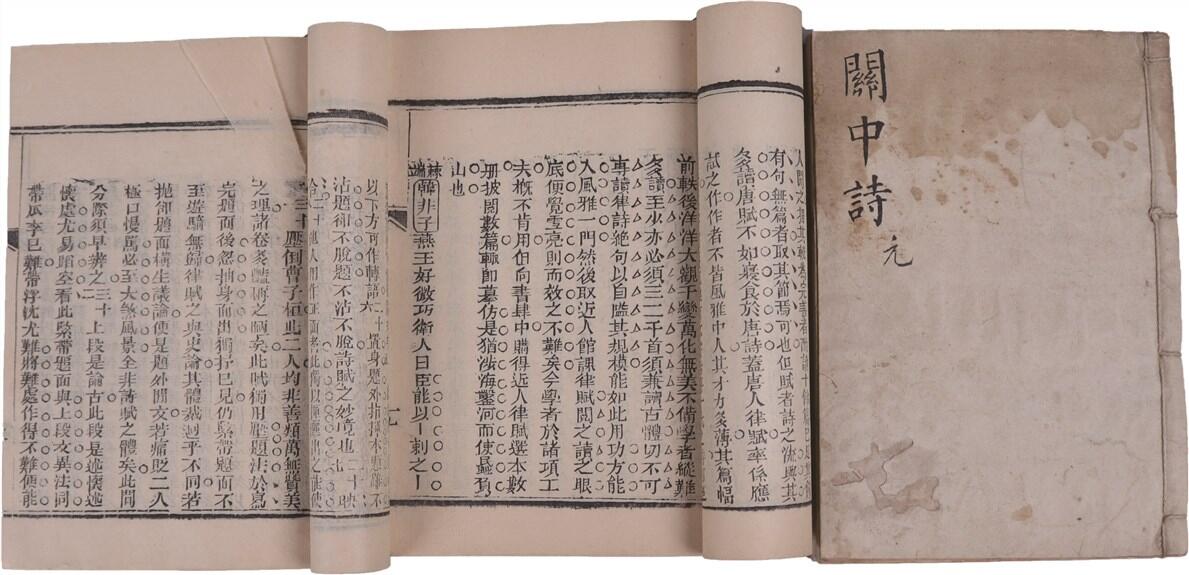 關中詩
元
有句無篇者取其節焉可也但賦者詩之流與其
多讀唐賦不如寢食於唐詩蓋唐人律賦率係應
試之作作者不皆風雅中人其才力多薄其篇幅
前軼後洋洋大觀千變萬化無美不備學者縱難
多讀至少亦必須三二千首須兼讀古體切不可
專讀律詩絕句以自隘其規模能如此用功方能
入風雅一門然後取近人館課律賦閱之讀之眼
底便覺雪亮則而效之不難矣今學者於諸項工
夫概不肯用但向書肆中購得近人律賦選本數
冊披閱數篇輒即摹仿是猶涉海鑿河而使蚉負
山也
棘端
韓非子燕王好微巧衛人曰臣能以一刺之一
以下方可作轉語
沾題卻不脫題不沾不脫詩賦之妙境也
壓倒曹子桓此二人均非善類萬無贊美
之理諸卷多
此賦獨用
題法於寫
完題面後忽抽身而出獨抒己見仍緊帶題面不
至遊騎無歸律賦之與史論其體裁迥乎不同若
拋卻題面橫生議論便是題外閒文若痛貶二人
極口慢罵必至大煞風景全非詩賦之體矣此間
分際須早辨之二三十上段是論古此段是述懷述
懷處尤易蹈空看此緊帶題面與上段文異法同
帶瓜李已難帶浮沈尤難將難處作得不難便能